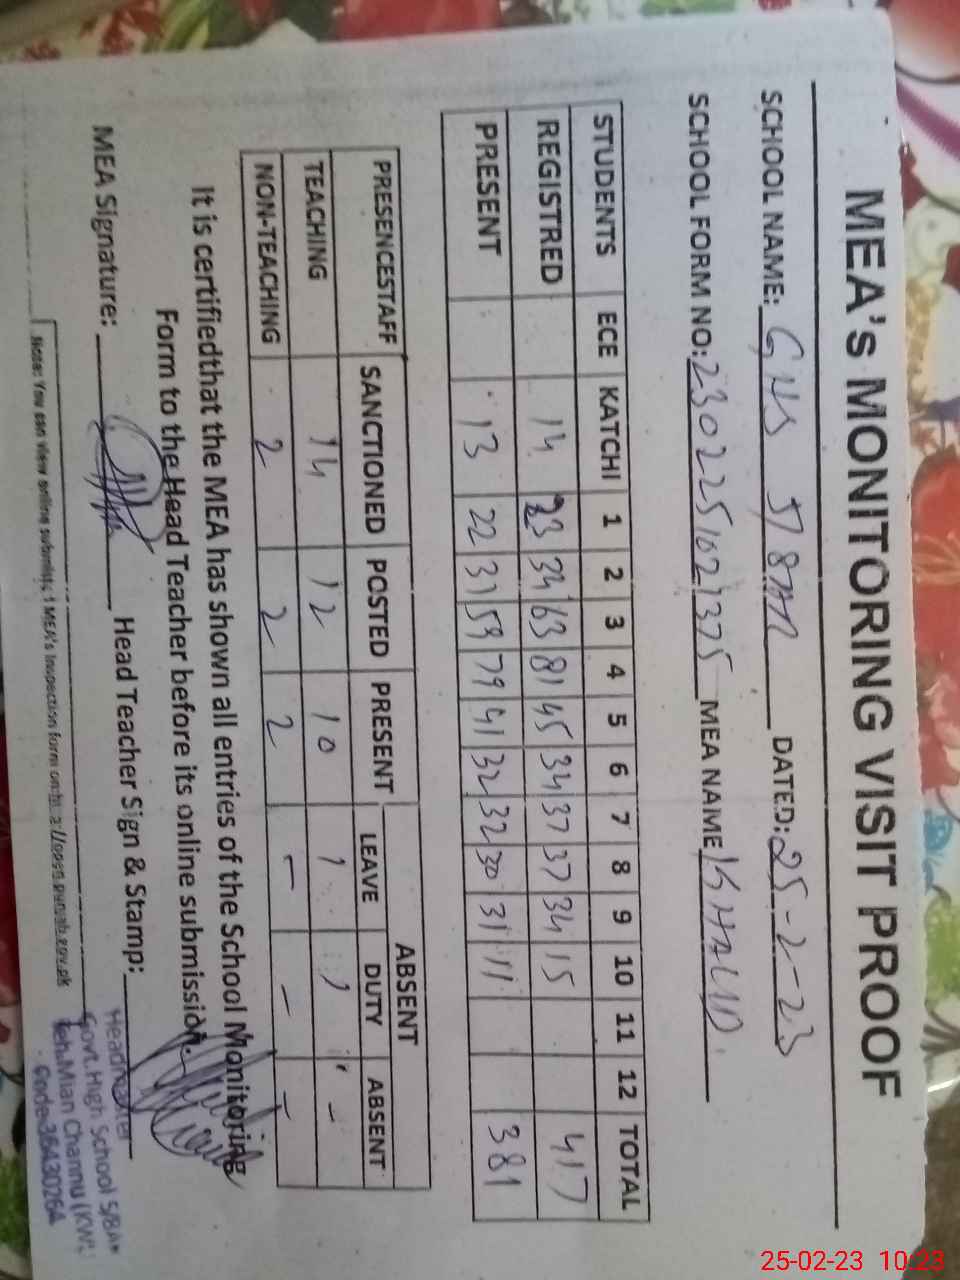 MEA'S MONITORING VISIT PROOF
SCHOOL NAME: GHS 5/8AR DATED: 25-2-23
SCHOOL FORM NO: 2302251021375 MEA NAME KHALID
STUDENTS ECE KATCHI 1 2 3 4 5 6 7 8 9 10 11 12 TOTAL
REGISTRED 14 23 34 63 81 45 34 37 37 34 15 417
PRESENT 13 22 31 59 79 41 32 32 30 31 11 381
ABSENT
PRESENCESTAFF SANCTIONED POSTED PRESENT LEAVE DUTY ABSENT
TEACHING 14 12 10 1 1 -
NON-TEACHING 2 2 2 - - -
It is certifiedthat the MEA has shown all entries of the School Monitoring
Form to the Head Teacher before its online submission.
MEA Signature: Head Teacher Sign & Stamp:
Headmaster
Govt. High School 5/8AR
Teh. Mian Channu (KWL
Code 36430264
Note: You can view online submited MEA's inspection form on open.punjab.gov.pk
25-02-23 10:23